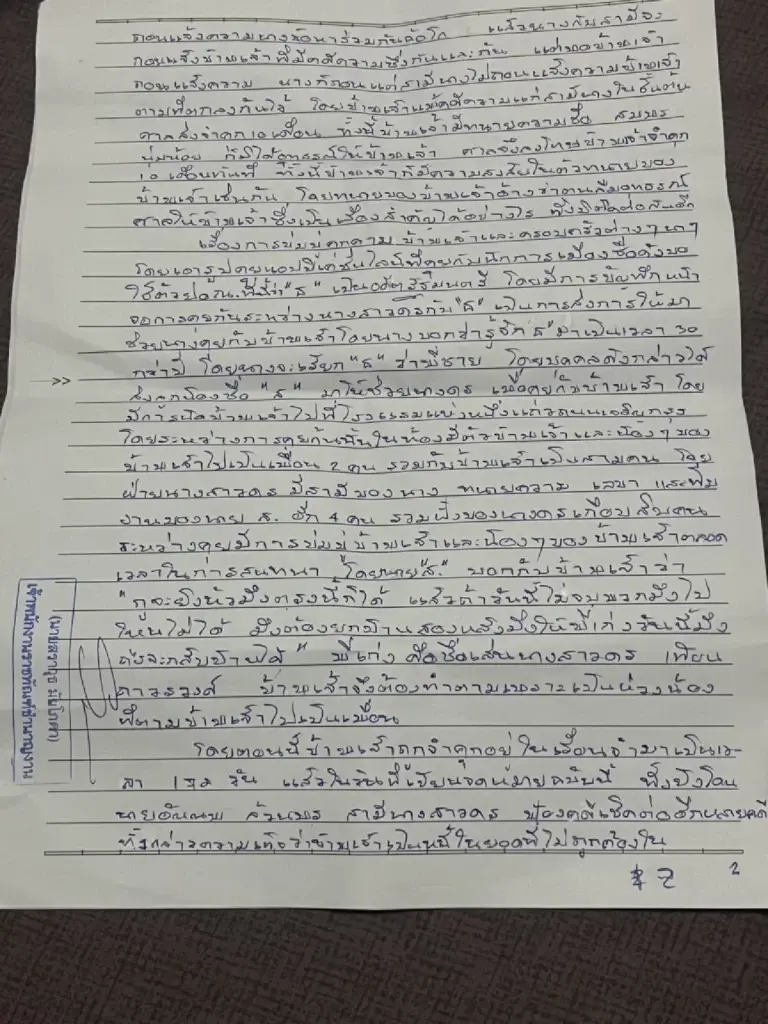 ถอนแจ้งความนางข้อหาร่วมกันฉ้อโกง แล้วนางกับสามีจะ
ถอนแจ้งข้าพเจ้าที่มีคดีความซึ่งกันและกัน แต่พอข้าพเจ้า
ถอนแจ้งความ นางก็ถอนแต่สามีนางไม่ถอนแจ้งความข้าพเจ้า
ตามที่ตกลงกันไว้ โดยข้าพเจ้าแพ้คดีความแก่สามีนางในชั้นต้น
ศาลสั่งจำคุก 10 เดือน ทั้งนี้ข้าพเจ้ามีทนายความชื่อ
นุ่มน้อย ก็มิได้อุทธรณ์ให้ข้าพเจ้า ศาลจึงลงโทษข้าพเจ้าจำคุก
10 เดือนทันที ทั้งนี้ข้าพเจ้าก็มีความสงสัยในตัวทนายของ
ข้าพเจ้าเช่นกัน โดยทนายของข้าพเจ้าอ้างว่าตนลืมอุทธรณ์
ศาลให้ข้าพเจ้าซึ่งเป็นเรื่องสำคัญได้อย่างไร
เรื่องการข่มขู่คุกคาม ข้าพเจ้าและครอบครัวต่างๆ นาๆ
โดยเอารูปคุยแอปพิเคชั่นไลน์ที่คุยกับนักการเมืองชื่อดังขอ
ใช้ตัวย่อนะที่นี้ว่า "ธ" เป็นอดีตรัฐมนตรี โดยมีการบันทึกหน้า
จอการคุยกันระหว่างนางสาวดรกับ "ธ" เป็นการสั่งการให้มา
ช่วยนางคุยกับข้าพเจ้าโดยนางบอกว่ารู้จัก "ธ" มาเป็นเวลา 30
กว่าปี โดยนางจะเรียก "ธ" ว่าพี่ชาย โดยบุคคลดังกล่าวได้
ส่งลูกน้องชื่อ "ส" มาให้ช่วยนางดร เพื่อคุยกับข้าพเจ้า โดย
มีการนัดข้าพเจ้าไปที่โรงแรมแห่งหนึ่งแถวถนนเจริญกรุง
โดยระหว่างการคุยกันนั้นในห้องมีตัวข้าพเจ้าและน้องๆ ของ
ข้าพเจ้าไปเป็นเพื่อน 2 คน รวมกับข้าพเจ้าเป็นสามคน โดย
ฝ่ายนางสาวดร มีสามีของนาง ทนายความ เลขา และทีม
งานของนาย ส. อีก 4 คน รวมฝั่งของนางดรเกือบสิบคน
ระหว่างคุยมีการข่มขู่ข้าพเจ้าและน้องๆ ของข้าพเจ้าตลอด
เวลาในการสนทนา โดยนาย "ส." บอกกับข้าพเจ้าว่า
"กูจะยิงหัวมึงตรงนี้ก็ได้ แล้วถ้าวันนี้ไม่จบพวกมึงไป
ไหนไม่ได้ มึงต้องยกบ้านสองหลังมึงให้พี่เก่งวันนี้มึง
ถึงจะกลับบ้านได้" พี่เก่ง คือชื่อเล่นนางสาวดร เพียน
ถาวรวงศ์ ข้าพเจ้าจึงต้องทำตามเพราะเป็นห่วงน้อง
ที่ตามข้าพเจ้าไปเป็นเพื่อน
โดยตอนนี้ข้าพเจ้าถูกจำคุกอยู่ในเรือนจำมาเป็นเว-
ลา วัน แล้วในวันที่เขียนจดหมายฉบับนี้ ซึ่งยังโดน
นาย สามีนางสาวดร ฟ้องคดีเช็คต่ออีกหลายคดี
ทั้งกล่าวความเท็จว่าข้าพเจ้าเป็นหนี้ในยอดที่ไม่ถูกต้องใน
2
2
เจ้าพนักงานราชทัณฑ์ชำนาญงาน